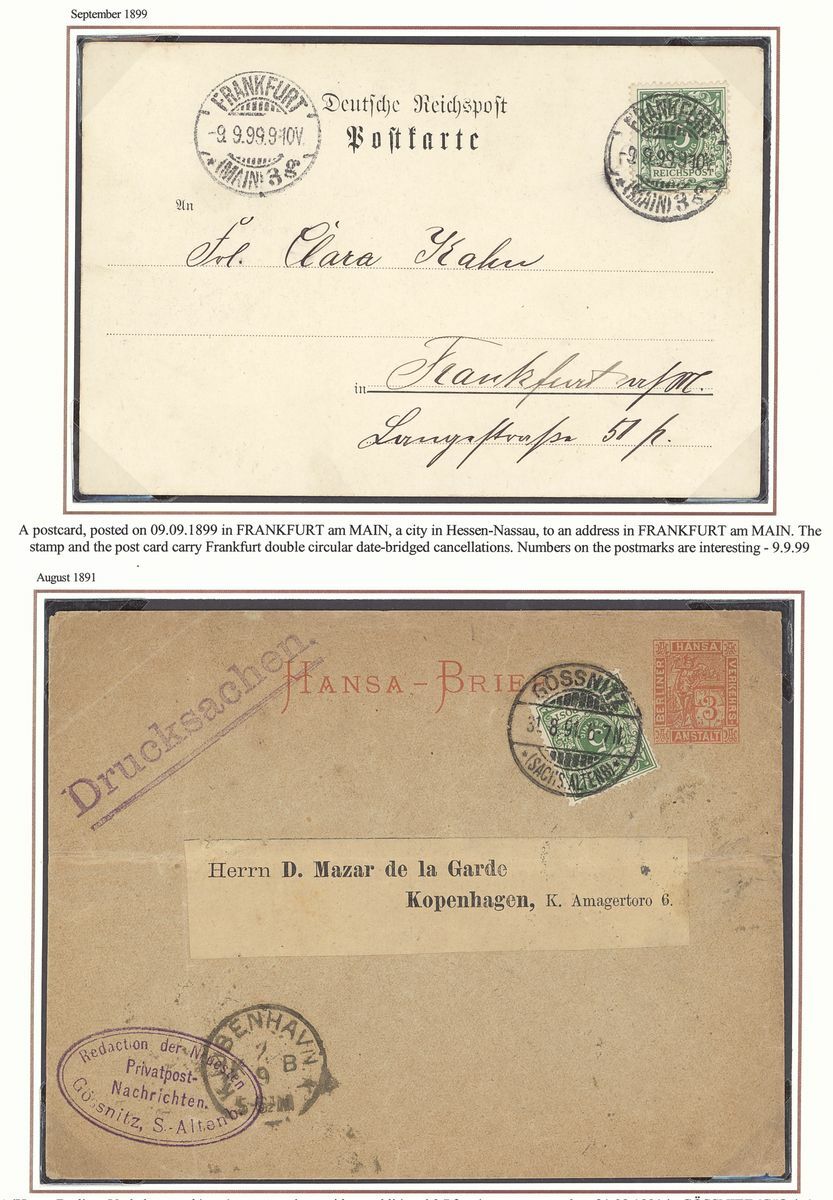 September 1899
FRANKFURT
-9. 9.99.9-10V.
* (MAIN) 3 g *
Deutsche Reichspost
Postkarte
FRANKFURT
-9. 9.99.9-10V.
* (MAIN) 3 g *
5
REICHSPOST
An
Frl. Clara Kahn
in Frankfurt a/M.
Langestraße 51 p.
A postcard, posted on 09.09.1899 in FRANKFURT am MAIN, a city in Hessen-Nassau, to an address in FRANKFURT am MAIN. The
stamp and the post card carry Frankfurt double circular date-bridged cancellations. Numbers on the postmarks are interesting - 9.9.99
August 1891
Drucksachen.
HANSA-BRIEF
GÖSSNITZ
31.8.91. 6-7N.
* (SACHS.ALTENB) *
BERLINER
HANSA
VERKEHRS
3
ANSTALT
Herrn D. Mazar de la Garde
Kopenhagen, K. Amagertoro 6.
KJØBENHAVN
B
9
Redaction der Neuesten
Privatpost-
Nachrichten.
Gössnitz, S.-Altenb.